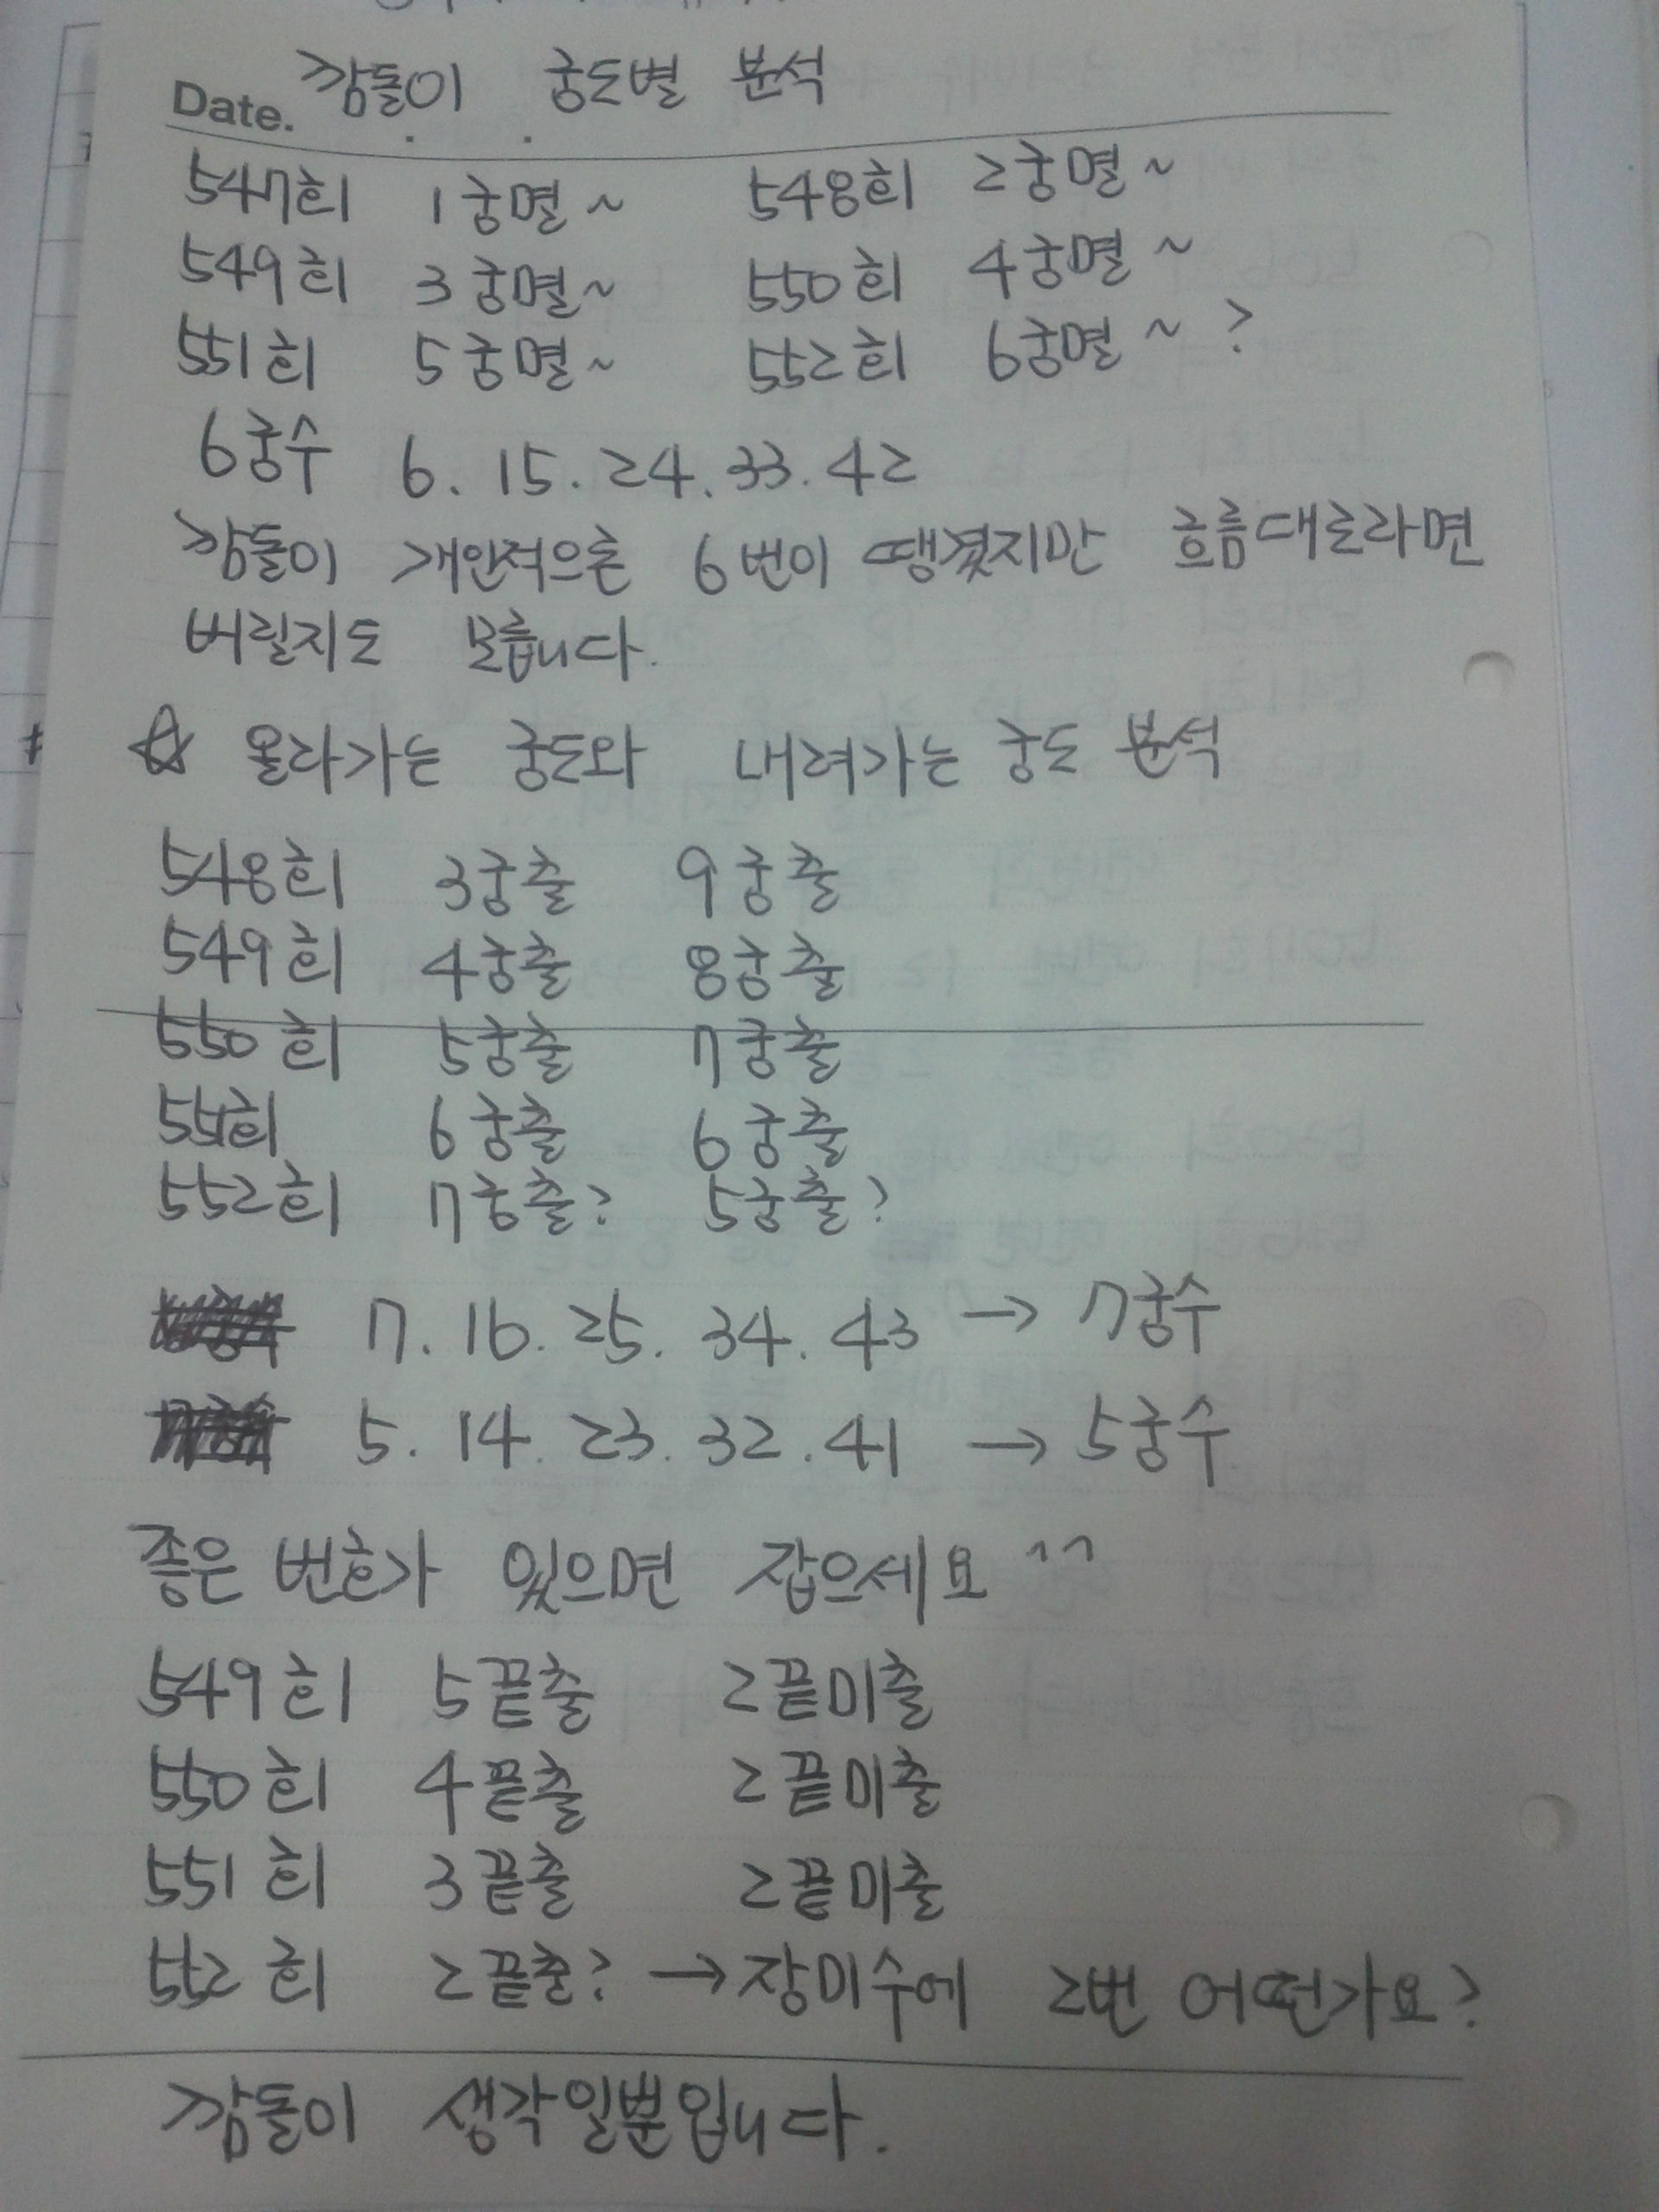 Date. 깜돌이 궁도별 분석
547회 1궁멸~ 548회 2궁멸~
549회 3궁멸~ 550회 4궁멸~
551회 5궁멸~ 552회 6궁멸~?
6궁수 6. 15. 24. 33. 42
깜돌이 개인적으론 6번이 땡겼지만 흐름대로라면
버릴지도 모릅니다.
☆ 올라가는 궁도와 내려가는 궁도 분석
548회 3궁출 9궁출
549회 4궁출 8궁출
550회 5궁출 7궁출
551회 6궁출 6궁출
552회 7궁출? 5궁출?
7. 16. 25. 34. 43 → 7궁수
5. 14. 23. 32. 41 → 5궁수
좋은 번호가 있으면 잡으세요 ^^
549회 5끝출 2끝미출
550회 4끝출 2끝미출
551회 3끝출 2끝미출
552회 2끝출? → 장미수에 2번 어떤가요?
깜돌이 생각일뿐입니다.